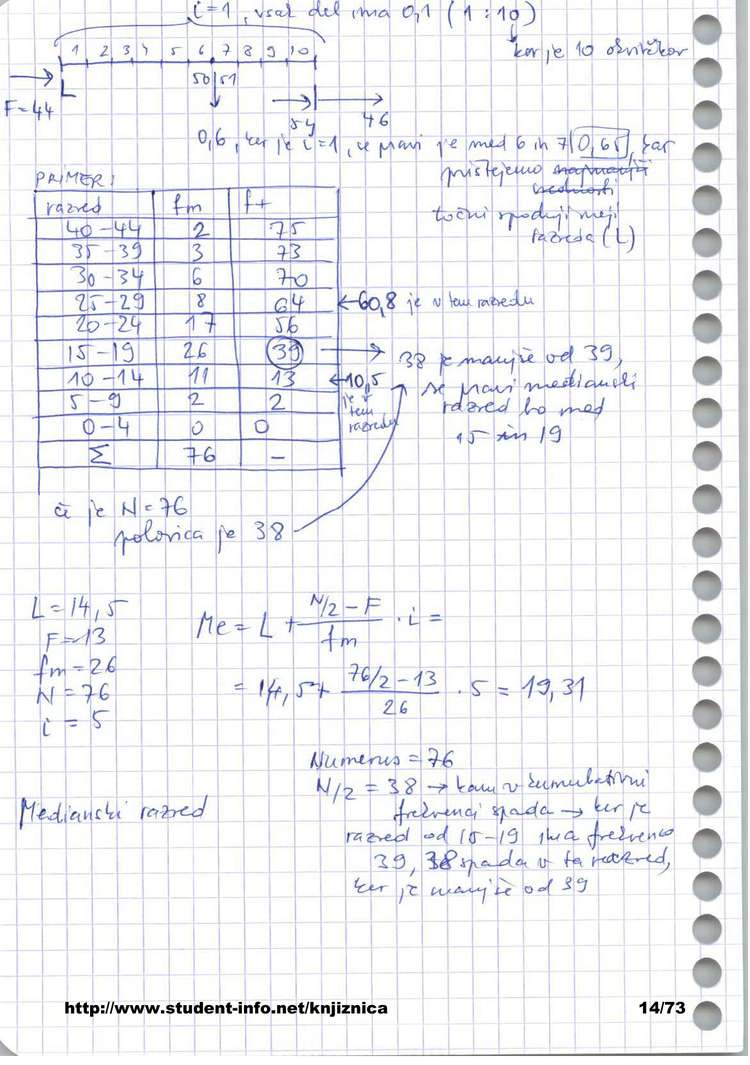 i=1, vsak del ima 0,1 (1:10)
ker je 10 osnitkov
1 2 3 4 5 6 7 8 9 10
L
F=44
50|51
54 46
0,6, ker je i=1, se pravi je med 6 in 7 0,65, kar
prištejemo najmanjši
vrednosti
točni spodnji meji
razreda (L)
PRIMER:
razred fm f+
40-44 2 75
35-39 3 73
30-34 6 70
25-29 8 64 ←60,8 je v tem razredu
20-24 17 56
15-19 26 39 → 38 je manjše od 39,
10-14 11 13 ←10,5 se pravi medianski
5-9 2 2 je v tem razredu razred bo med
0-4 0 0 15 in 19
Σ 76 -
če je N=76
polovica je 38
L=14,5
F=13
fm=26
N=76
i=5
Me = L + N/2-F / fm · i =
= 14,5+ 76/2-13 / 26 · 5 = 19,31
Numerus = 76
Medianski razred
N/2 = 38 → kam v kumulativni
frekvenci spada → ker je
razred od 15-19 ima frekvenco
39, 38 spada v ta razred,
ker je manjše od 39
http://www.student-info.net/knjiznica 14/73